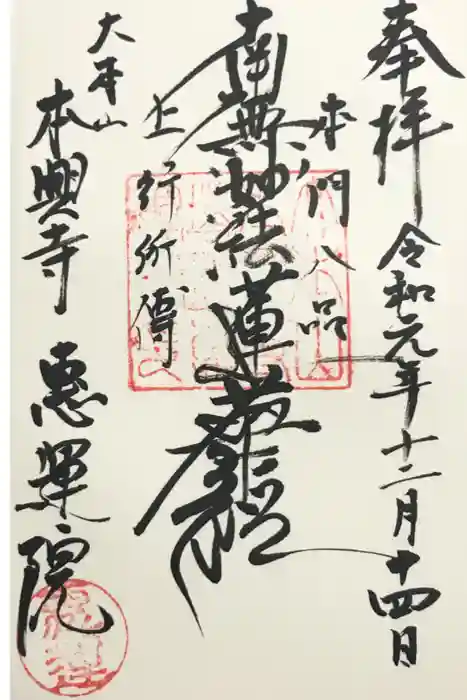 奉拝 令和元年十二月十四日
本門八品
南無妙法蓮華経
上行所傳
大本山
本興寺 恵運院